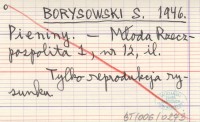 BORYSOWSKI S. 1946.
Pieniny. — Młoda Rzecz-
pospolita 1, nr 12, il.
Tylko reprodukcja ry-
sunku
BT/006/0273